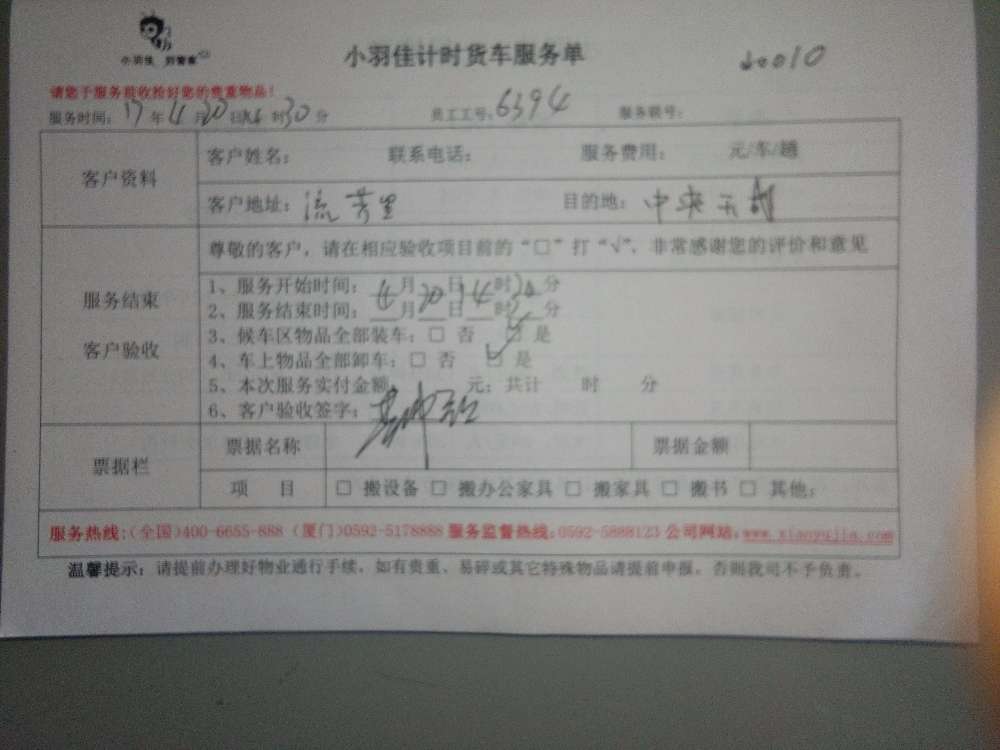 小羽佳计时货车服务单
小羽佳
请您于服务前收拾好您的贵重物品！
服务时间：17年4月20日 时30分 员工工号：6394 服务联号：
客户资料
客户姓名： 联系电话： 服务费用： 元/车/趟
客户地址：流芳里 目的地：中央
服务结束
客户验收
尊敬的客户，请在相应验收项目前的“□”打“√”，非常感谢您的评价和意见
1、服务开始时间：4月20日14时30分
2、服务结束时间：__月__日__时__分
3、候车区物品全部装车：□ 否 □ 是
4、车上物品全部卸车：□ 否 □ 是
5、本次服务实付金额 元；共计 时 分
6、客户验收签字：
票据栏
票据名称 票据金额
项 目 □ 搬设备 □ 搬办公家具 □ 搬家具 □ 搬书 □ 其他：
服务热线：(全国)400-6655-888 (厦门)0592-5178888 服务监督热线：0592-5888123 公司网站：www.xiaoyujia.com
温馨提示：请提前办理好物业通行手续，如有贵重、易碎或其它特殊物品请提前申报，否则我司不予负责。